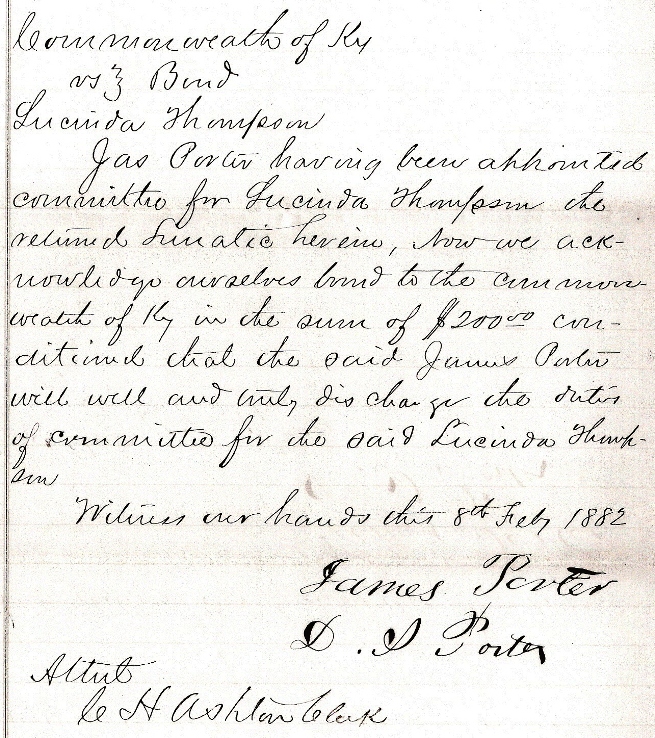 Commonwealth of Ky
vs } Bond
Lucinda Thompson
Jas Porter having been appointed
committee for Lucinda Thompson the
returned Lunatic herein, Now we ack-
nowledge ourselves bond to the common-
wealth of Ky in the sum of $200.00 con-
ditioned that the said James Porter
will well and truly discharge the duties
of committee for the said Lucinda Thomp-
son
Witness our hands this 8th Feby 1882
James Porter
D. S Porter
Attest
C H Ashton Clerk